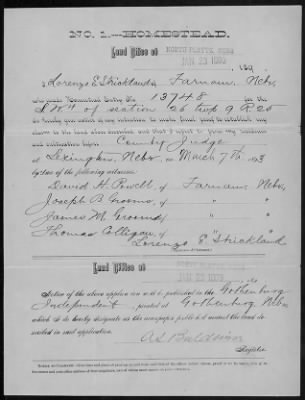 NO. 1.—HOMESTEAD.
Land Office at NORTH PLATTE, NEBR.
JAN 23 1893 189
I, Lorenzo E Strickland of Farnam, Nebr,
who made Homestead Entry No. 13748 for the
S.W.4 of section 26 twp 9 R 25
do hereby give notice of my intention to make final proof to establish my
claim to the land above described, and that I expect to prove my residence
and cultivation before County Judge
at Lexington, Nebr, on March 7th, 1893
by two of the following witnesses:
David H. Powell, of Farnam Nebr,
Joseph B. Grooms, of " "
James M. Grooms, of " "
Thomas Colligan, of " "
Lorenzo E. Strickland
Land Office at
JAN 23 1893
Notice of the above application will be published in the Gothenburg
Independent, printed at Gothenburg Nebr,
which I do hereby designate as the newspaper published nearest the land described
in said application.
A.S. Baldwin
Register.